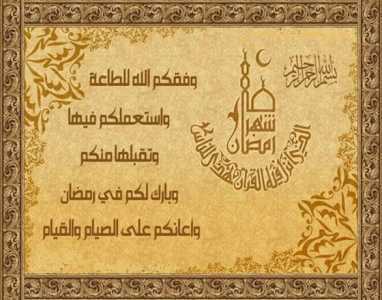 بسم الله الرحمن الرحيم
شهر رمضان
الذي أنزل فيه القرآن هدى للناس
وفقكم الله للطاعة
واستعملكم فيها
وتقبلها منكم
وبارك لكم في رمضان
وأعانكم على الصيام والقيام